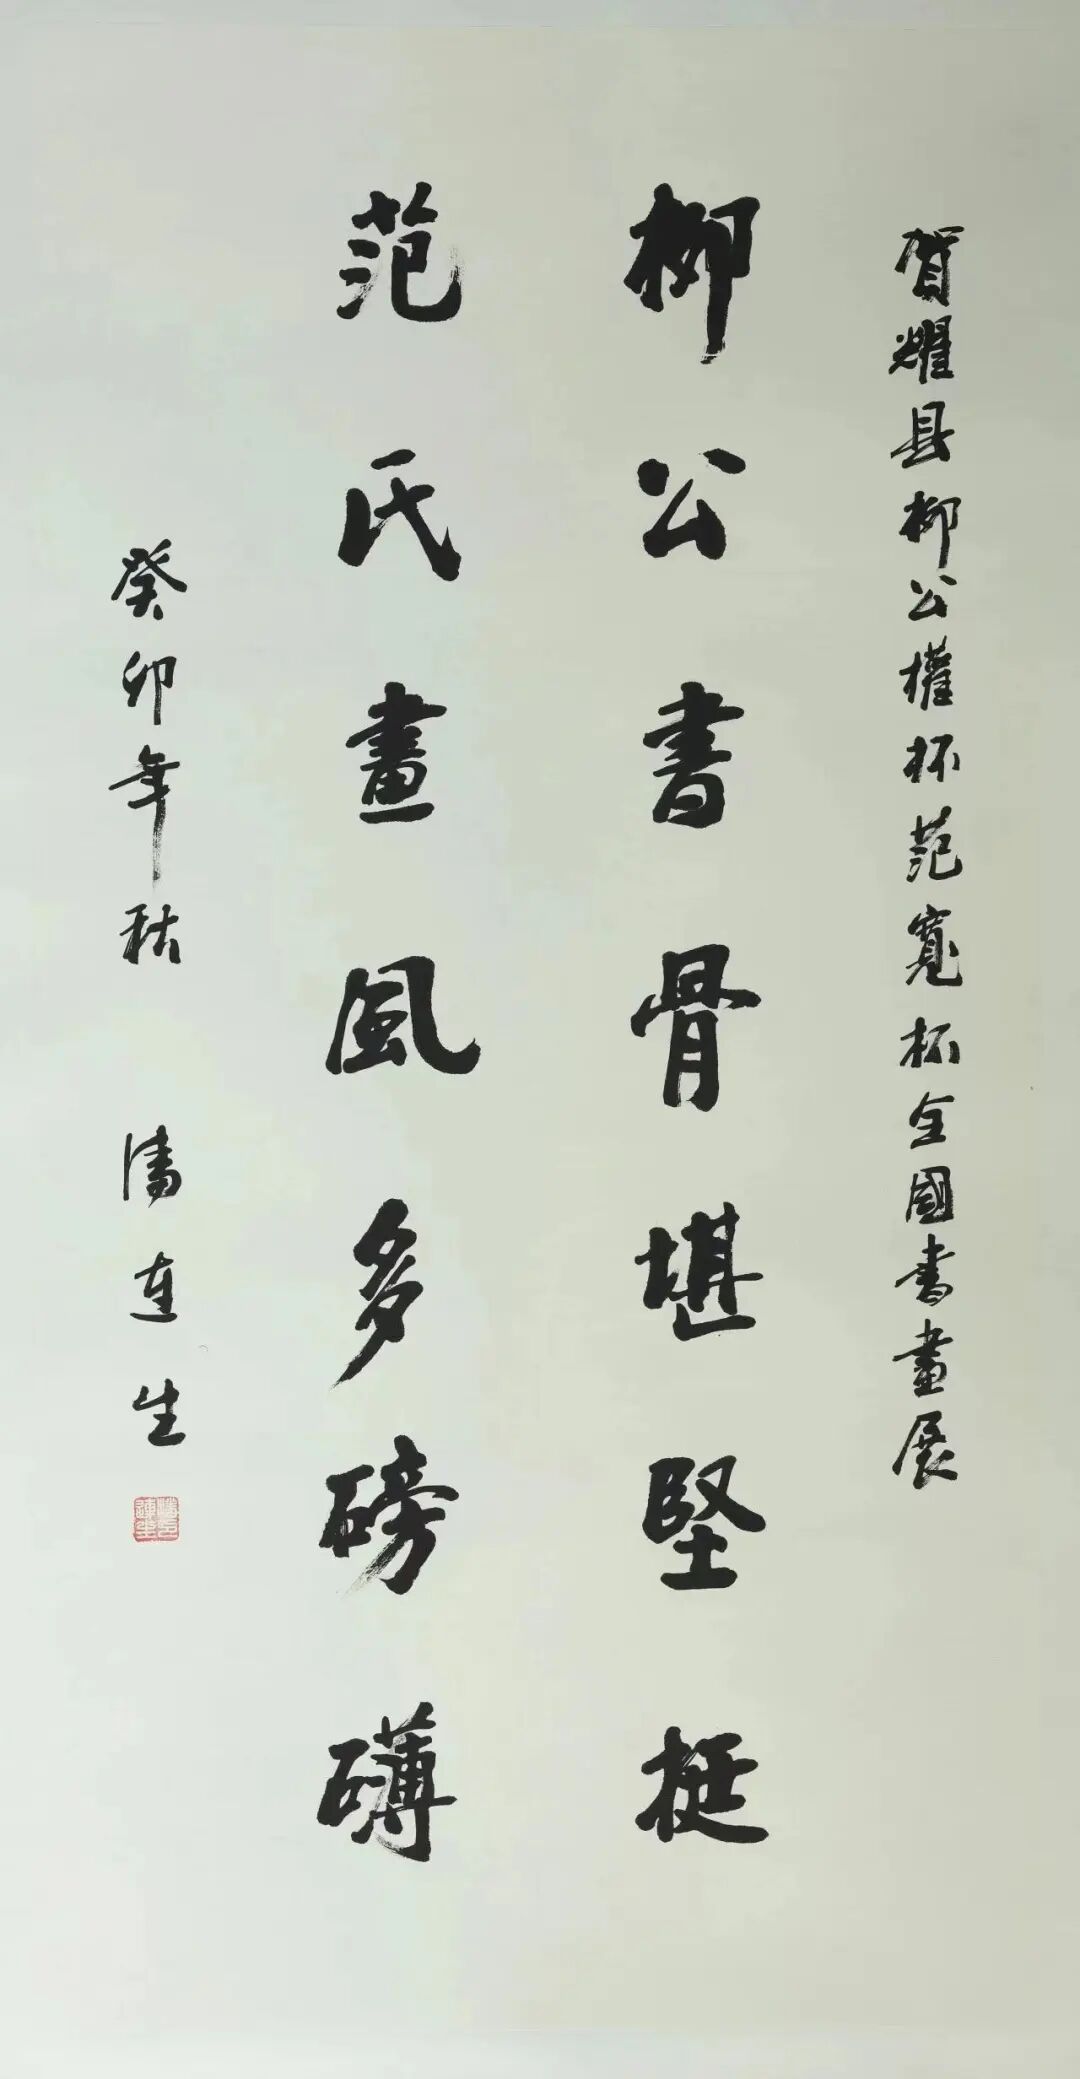 賀耀县柳公權杯范寬杯全國書畫展
柳公書骨堪堅挺
范氏畫風多磅礴
癸卯年秋 連生
連生